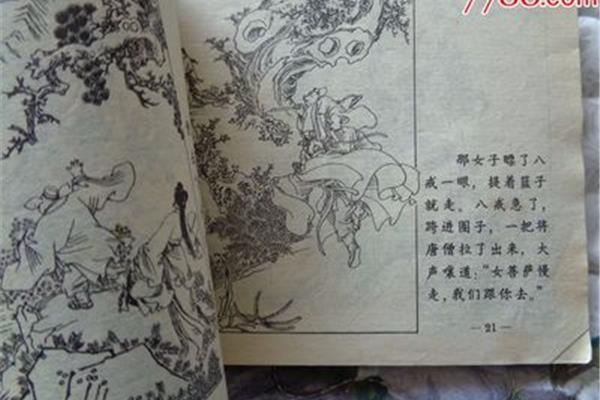 7788.com
那女子瞟了八
戒一眼，提着篮子
就走。八戒急了，
跨进圈子，一把将
唐僧拉了出来，大
声嚷道：“女菩萨慢
走，我们跟你去。”
—21—